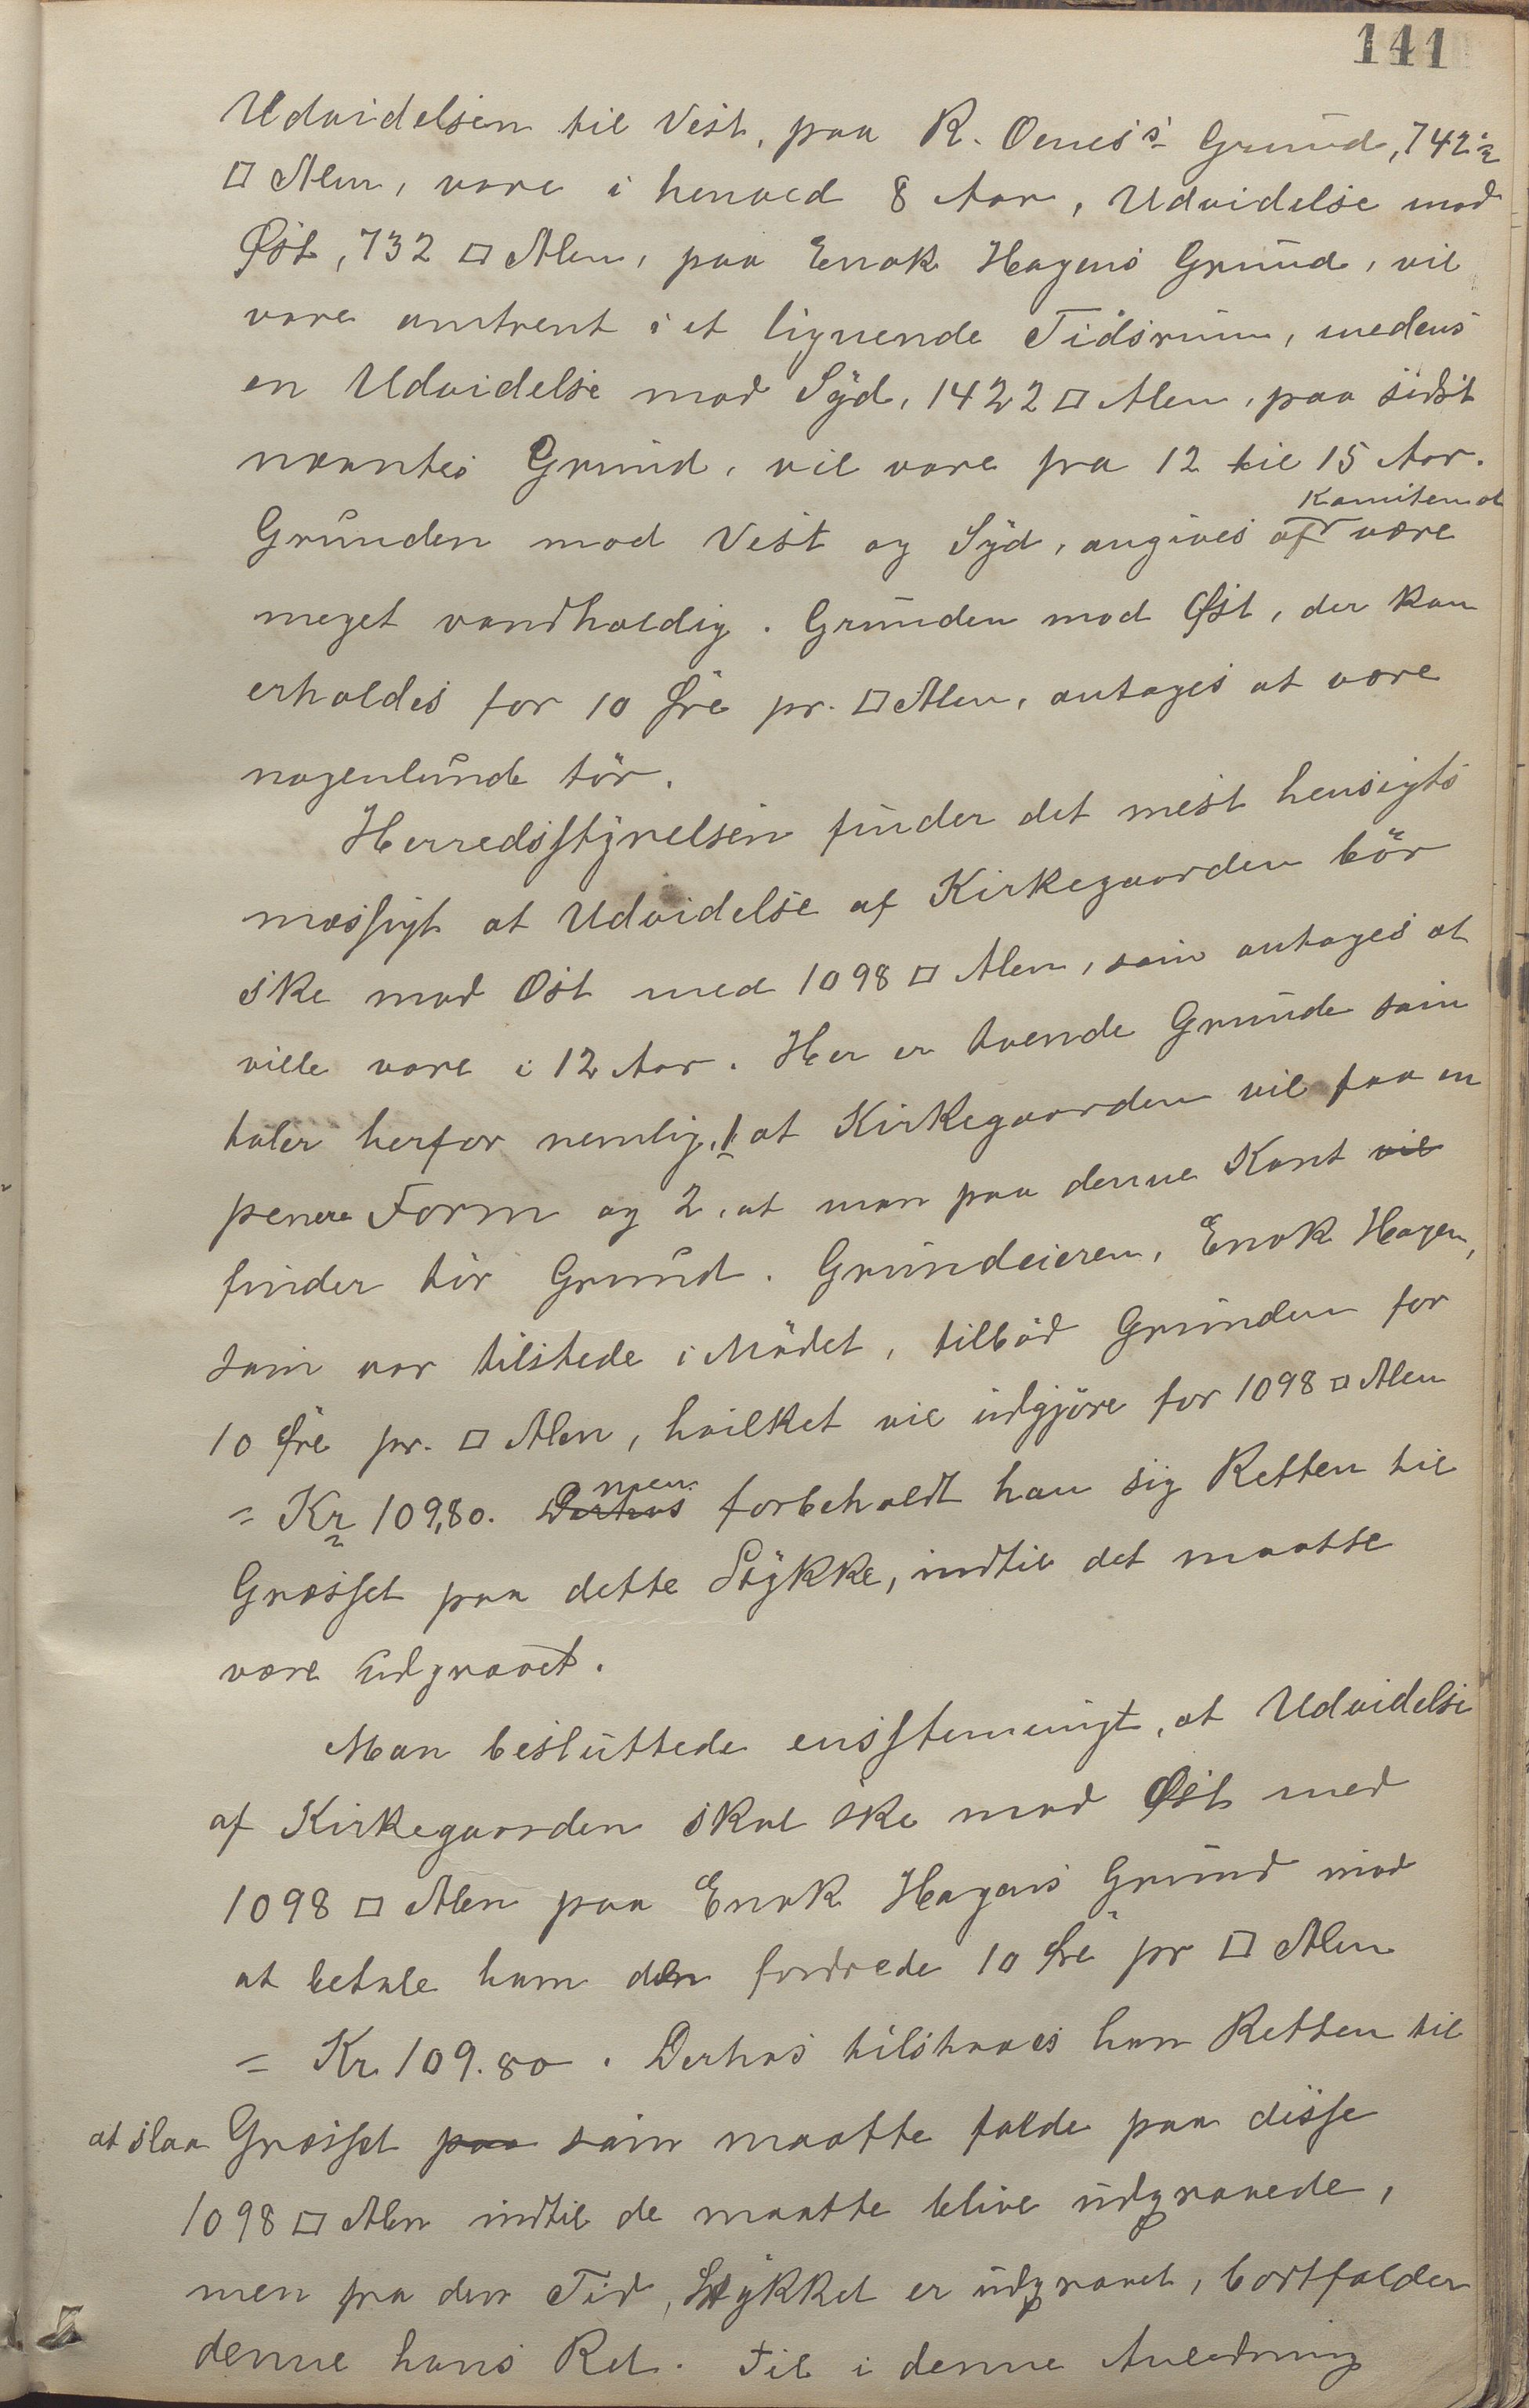 141
Udvidelsen til Vest, paa R. Oenes's Grund, 742
□ Alen, vare i henved 8 Aar, Udvidelse mod
Øst, 732 □ Alen, paa Enok Hagens Grund, vil
vare omtrent i et lignende Tidsrum, medens
en Udvidelse mod Syd, 1422 □ Alen, paa sidst
nævntes Grund, vil vare fra 12 til 15 Aar.
Komiteen at
Grunden mod Vest og Syd, angives af være
meget vandholdig. Grunden mod Øst, der kan
erholdes for 10 Øre pr. □ Alen, antages at være
nogenlunde tör.
Herredsstyrelsen finder det mest hensigts
mæssigt at Udvidelse af Kirkegaarden bör
ske mod Øst med 1098 □ Alen, som antages at
ville vare i 12 Aar. Her er tvende Grunde som
taler herfor nemlig, 1, at Kirkegaarden vil faa en
penere Form og 2, at man paa denne Kant vil
finder tör Grund. Grundeieren, Enok Hagen,
som var tilstede i Mödet, tilböd Grunden for
10 Øre pr. □ Alen, hvilket vil udgjöre for 1098 □ Alen
men
= Kr 109,80. Derhos forbeholdt han sig Retten til
Græsset paa dette Stykke, indtil det maatte
være udgravet.
Man besluttede ensstemmigt, at Udvidelse
af Kirkegaarden skal ske mod Øst med
1098 □ Alen paa Enok Hagens Grund mod
at betale ham den fordrede 10 Øre pr □ Alen
= Kr. 109.80. Derhos tilstaaes ham Retten til
at slaa Græsset paa som maatte falde paa disse
1098 □ Alen indtil de maatte blive udgravede,
men fra den Tid, Stykket er udgravet, bortfalder
denne hans Ret. Til i denne Anledning